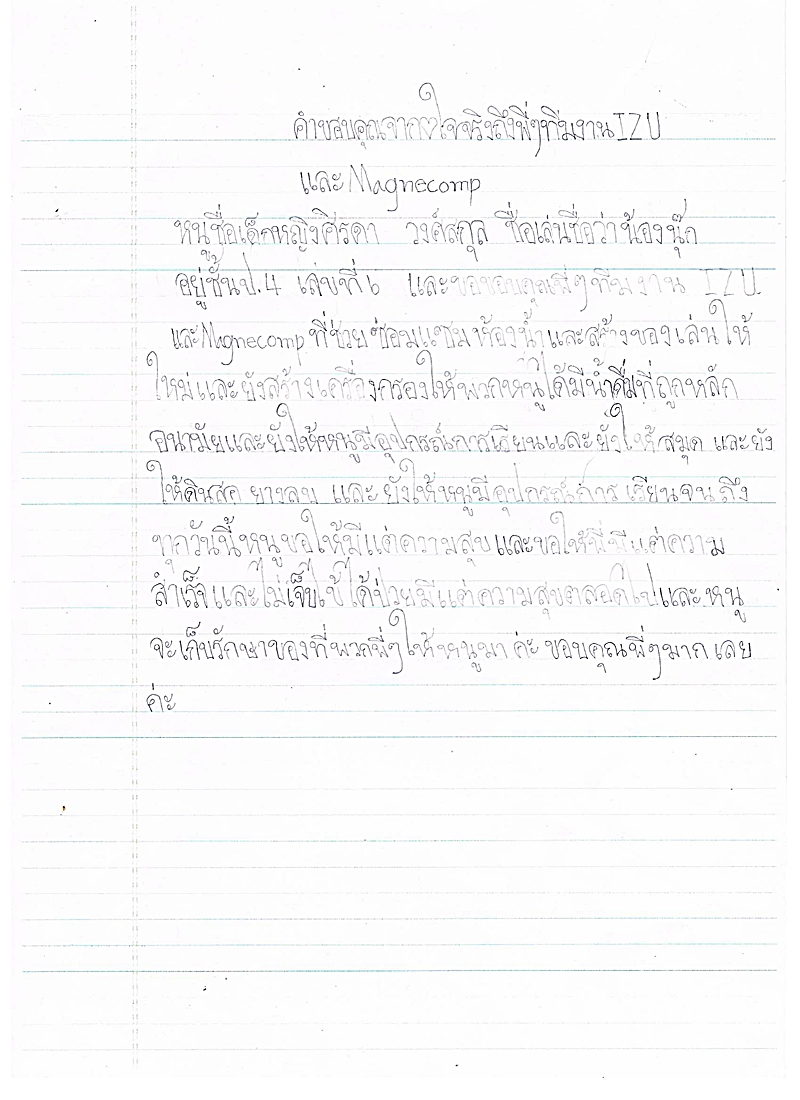 คำขอบคุณจากใจจริงถึงพี่ๆทีมงาน IZU
และ Magnecomp
หนูชื่อเด็กหญิงศิรดา วงศ์สกุล ชื่อเล่นชื่อว่าน้องนุ๊ก
อยู่ชั้นป.4 เลขที่6 และขอขอบคุณพี่ๆทีมงาน IZU
และMagnecomp ที่ช่วยซ่อมแซมห้องน้ำและสร้างของเล่นให้
ใหม่และยังสร้างเครื่องกรองให้พวกหนูได้มีน้ำดื่มที่ถูกหลัก
อนามัยและยังให้หนูมีอุปกรณ์การเรียนและยังให้สมุด และยัง
ให้ดินสอ ยางลบ และ ยังให้หนูมีอุปกรณ์การ เรียนจน ถึง
ทุกวันนี้หนูขอให้มีแต่ความสุขและขอให้พี่มีแต่ความ
สำเร็จและไม่เจ็บไข้ได้ป่วยมีแต่ความสุขตลอดไปและหนู
จะเก็บรักษาของที่พวกพี่ๆให้หนูมาค่ะ ขอบคุณพี่ๆมากเลย
ค่ะ